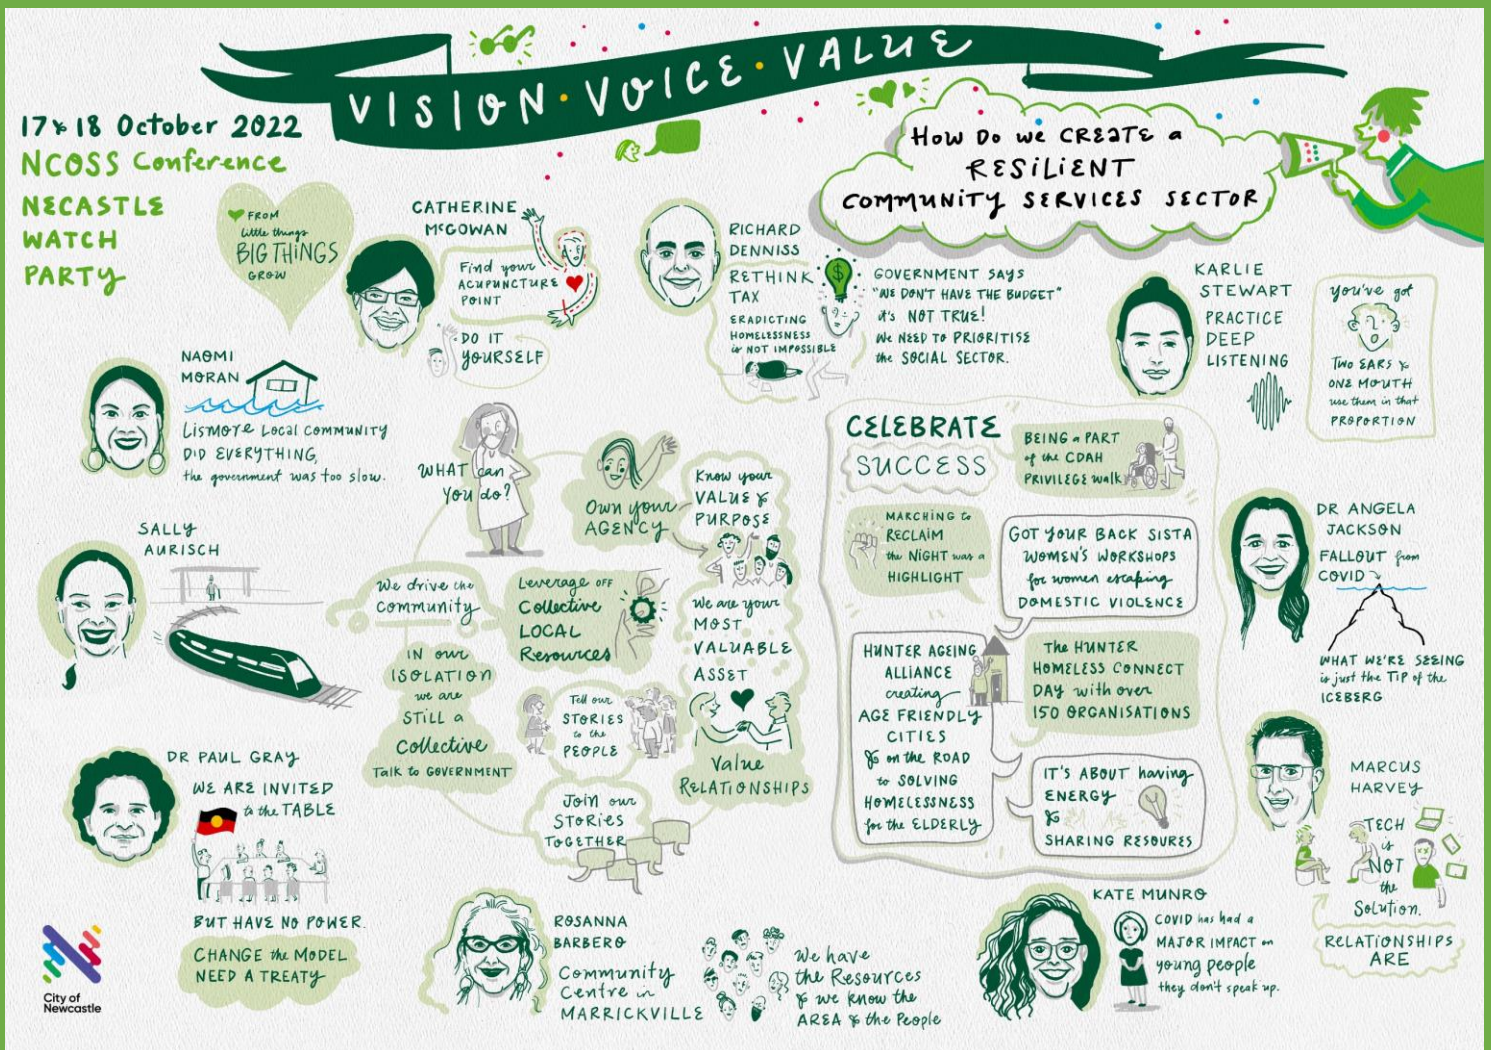 VISION · VOICE · VALUE
17 & 18 October 2022
NCOSS Conference
NECASTLE
WATCH
PARTY
FROM
little things
BIG THINGS
GROW
CATHERINE
McGOWAN
Find your
ACUPUNCTURE
POINT
DO IT
YOURSELF
RICHARD
DENNISS
RETHINK
TAX
ERADICTING
HOMELESSNESS
is NOT IMPOSSIBLE
$
GOVERNMENT SAYS
"WE DON'T HAVE THE BUDGET"
it's NOT TRUE!
WE NEED TO PRIORITISE
the SOCIAL SECTOR.
HOW DO WE CREATE a
RESILIENT
COMMUNITY SERVICES SECTOR
KARLIE
STEWART
PRACTICE
DEEP
LISTENING
you've got
TWO EARS &
ONE MOUTH
use them in that
PROPORTION
NAOMI
MORAN
LISMORE LOCAL COMMUNITY
DID EVERYTHING,
the government was too slow.
SALLY
AURISCH
WHAT can
YOU do?
OWN your
AGENCY
Know your
VALUE &
PURPOSE
We are your
MOST
VALUABLE
ASSET
Value
RELATIONSHIPS
We drive the
community
Leverage OFF
Collective
LOCAL
Resources
IN our
ISOLATION
we are
STILL a
Collective
TALK to GOVERNMENT
Tell our
STORIES
to the
PEOPLE
JOIN our
STORIES
TOGETHER
CELEBRATE
SUCCESS
BEING a PART
of the CDAH
PRIVILEGE walk
MARCHING to
RECLAIM
the NIGHT was a
HIGHLIGHT
GOT YOUR BACK SISTA
WOMEN'S WORKSHOPS
for women escaping
DOMESTIC VIOLENCE
HUNTER AGEING
ALLIANCE
creating
AGE FRIENDLY
CITIES
& on the ROAD
to SOLVING
HOMELESSNESS
for the ELDERLY
The HUNTER
HOMELESS CONNECT
DAY with over
150 ORGANISATIONS
IT'S ABOUT having
ENERGY
&
SHARING RESOURES
DR ANGELA
JACKSON
FALLOUT from
COVID
WHAT WE'RE SEEING
is just the TIP of the
ICEBERG
DR PAUL GRAY
WE ARE INVITED
to the TABLE
BUT HAVE NO POWER.
CHANGE the MODEL
NEED A TREATY
MARCUS
HARVEY
TECH
is
NOT
the
Solution.
RELATIONSHIPS
ARE
ROSANNA
BARBERO
Community
Centre in
MARRICKVILLE
We have
the Resources
& we know the
AREA & the People
KATE MUNRO
COVID has had a
MAJOR IMPACT on
young people
they don't speak up.
City of
Newcastle